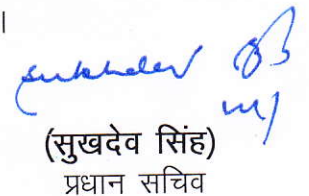 ।
sukhdev
(सुखदेव सिंह)
प्रधान सचिव